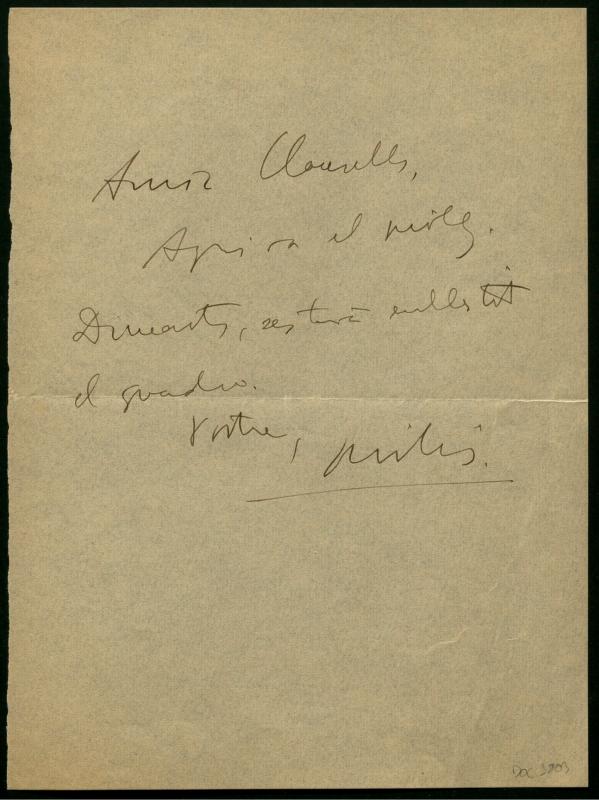 Amic Clausells,
Aquí va el
Dimarts, estará enllestit
el quadro.
Vostre,
DOC 3203